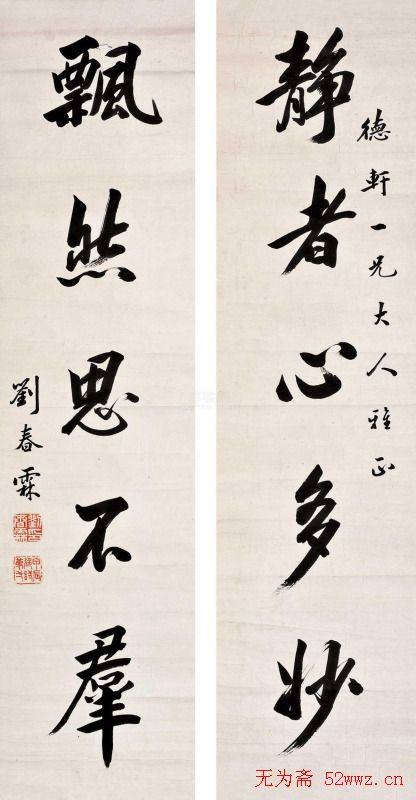 德軒一兄大人雅正
静者心多妙
飄然思不羣
劉春霖
无为斋 52wwz.cn